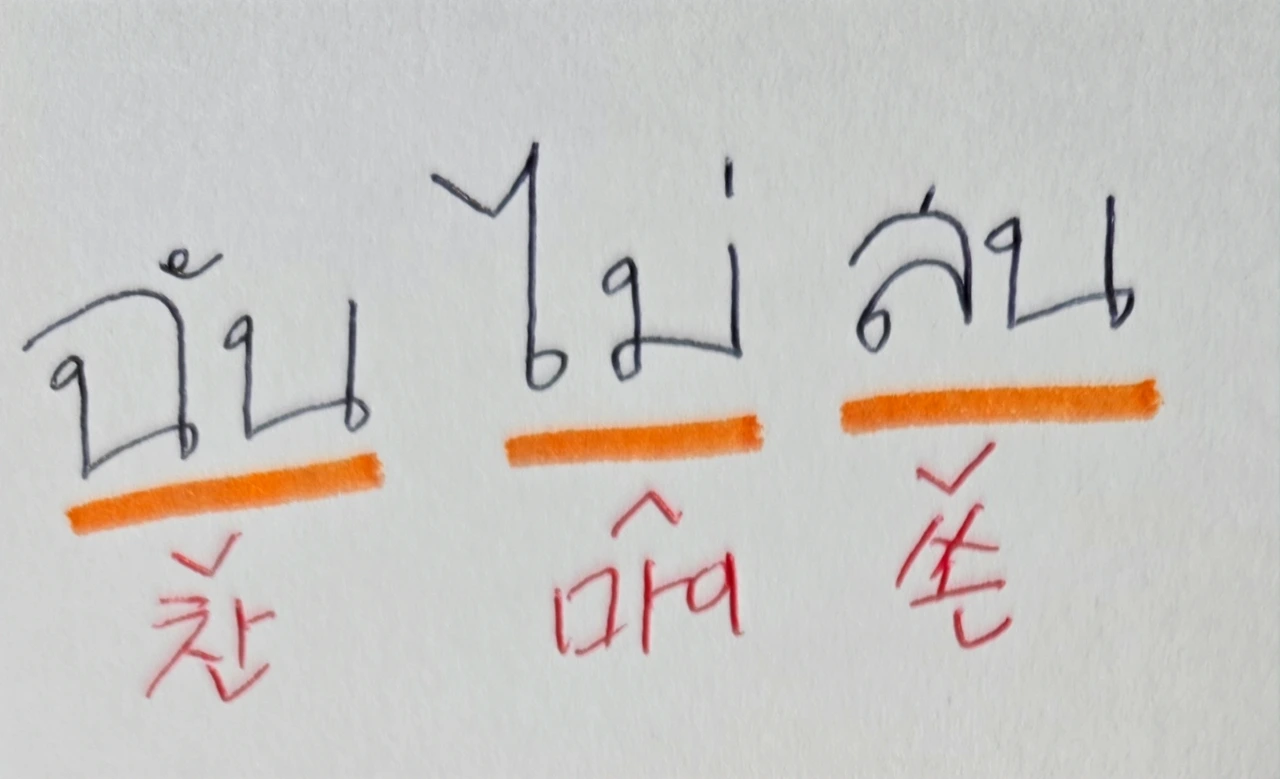 ฉัน ไม่ สน
찬 마이 쏜